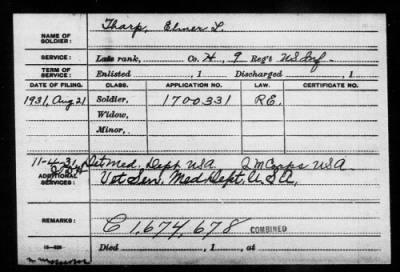 Tharp, Elmer L.
NAME OF SOLDIER:
SERVICE: Late rank, Co. H, 9 Reg't US Inf.
TERM OF SERVICE: Enlisted , 1 Discharged , 1
DATE OF FILING. CLASS. APPLICATION NO. LAW. CERTIFICATE NO.
1931, Aug 21 Soldier, 1700331 RE.
Widow,
Minor,
11-4-31 Det Med. Dept USA Q M Corps USA
ADDITIONAL SERVICES: Vet Serv. Med Dept. U.S.A.
REMARKS: C 1,674,678 COMBINED
Died , 1 , at